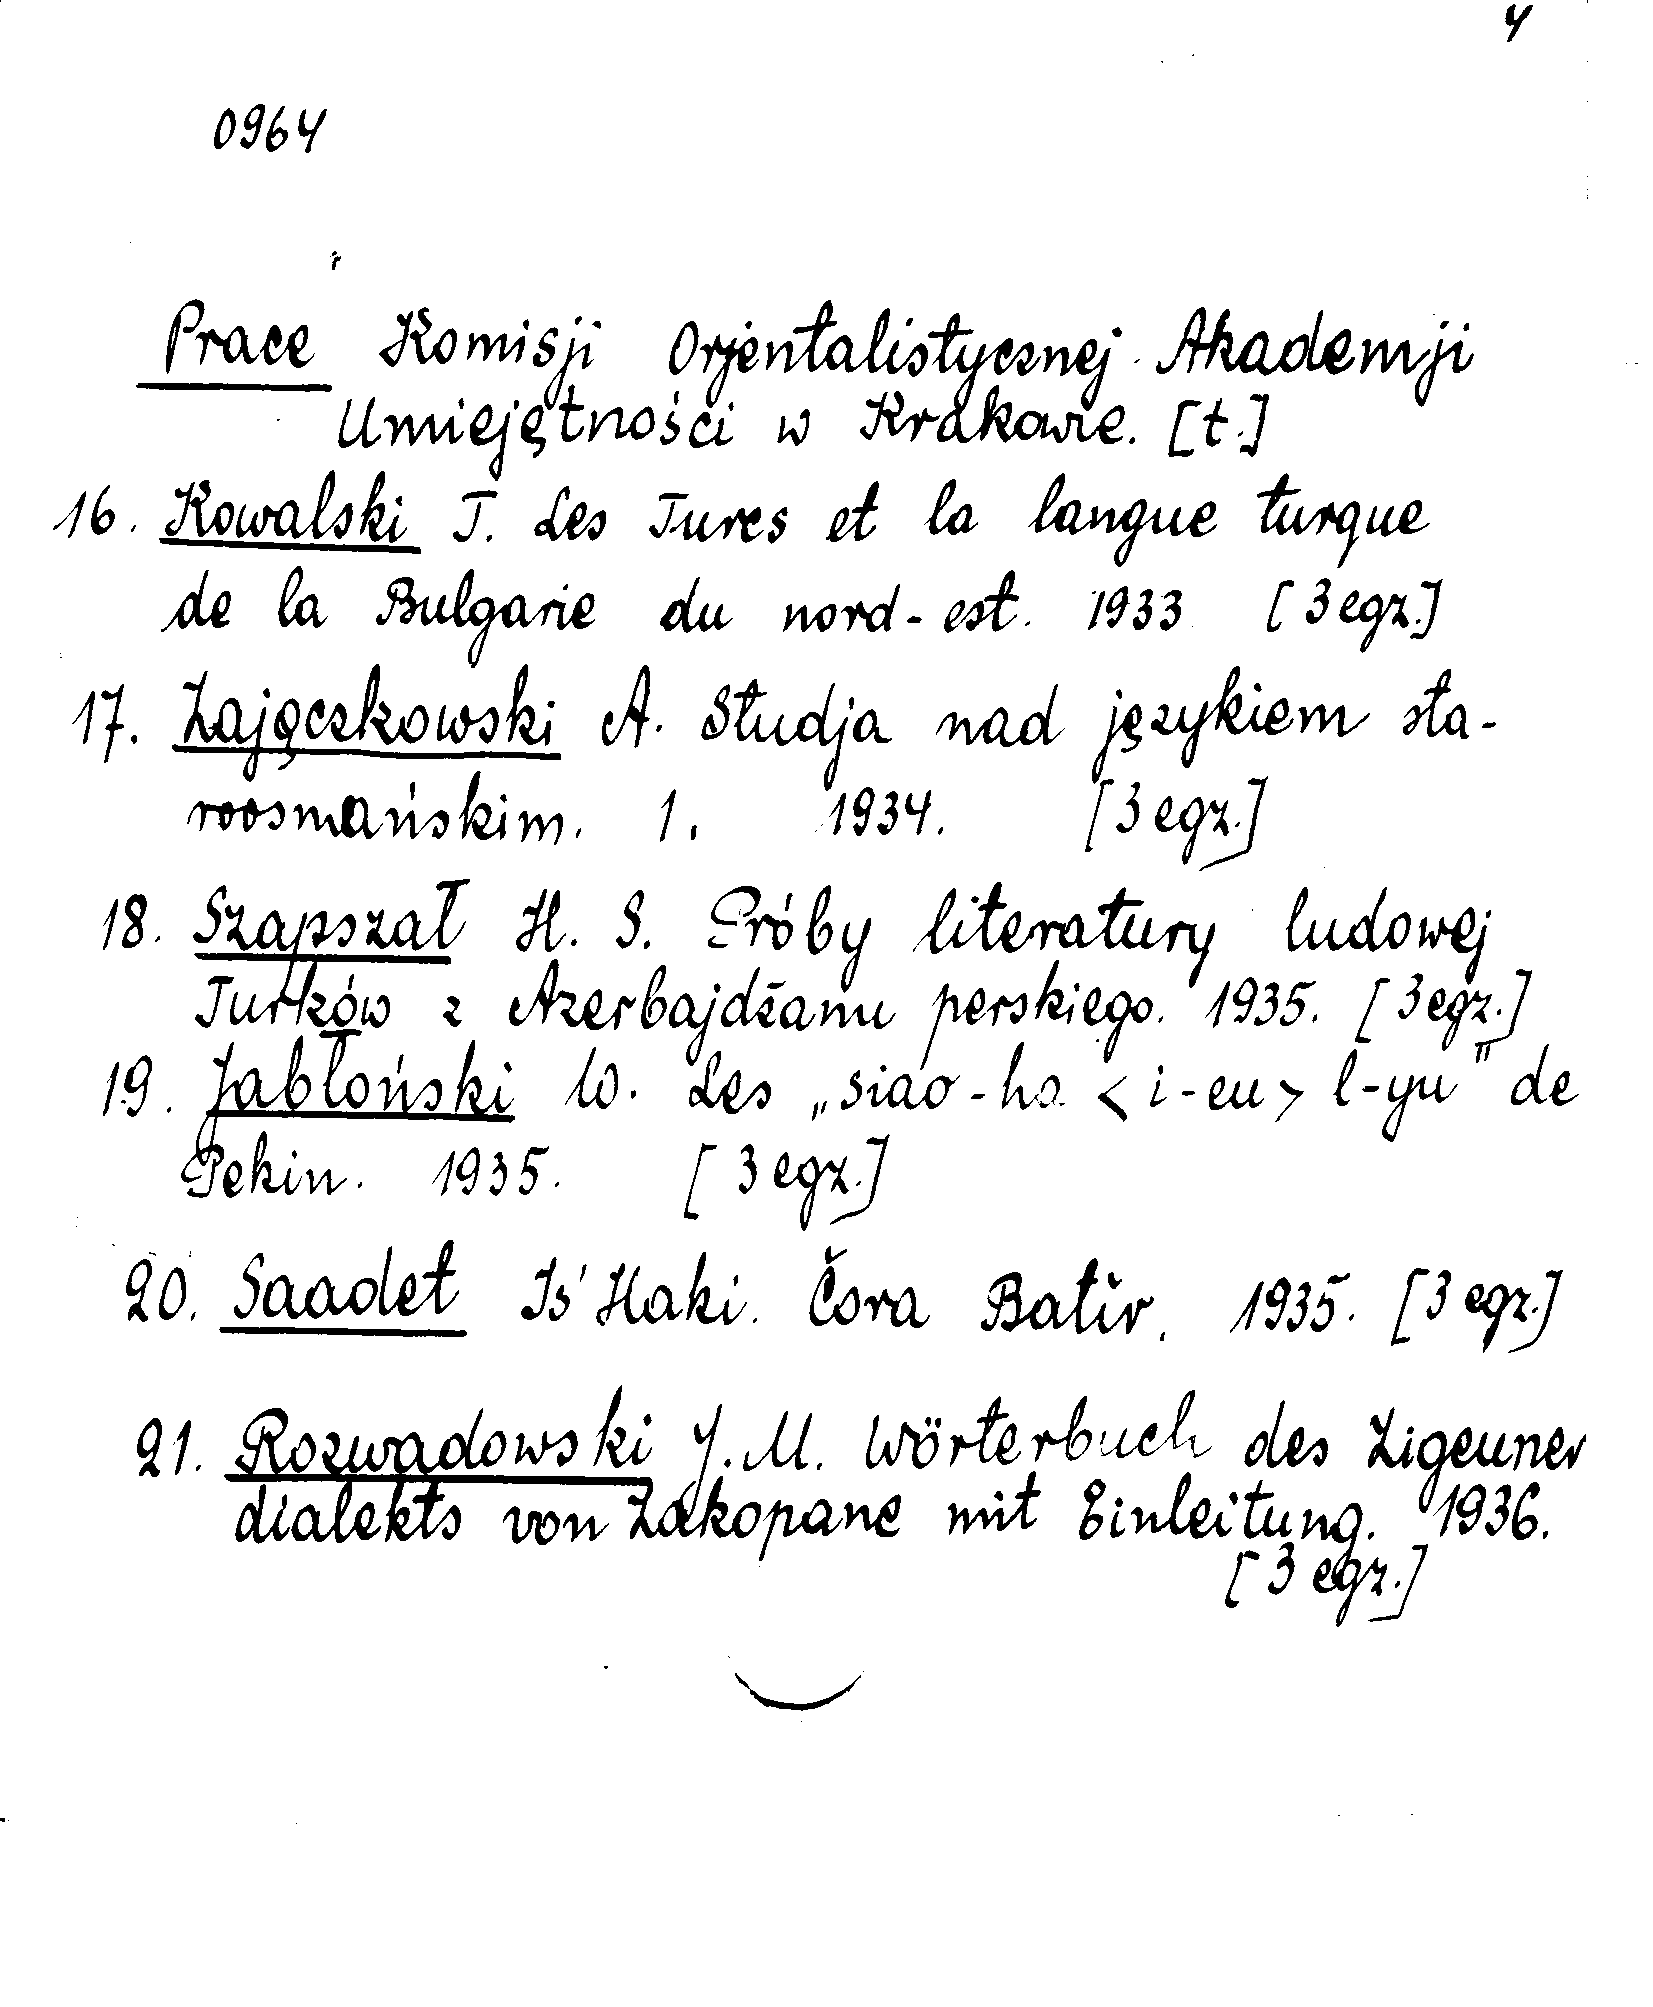 4
0964
Prace Komisji Orjentalistycznej Akademji
Umiejętności w Krakowie. [t.]
16. Kowalski T. Les Turcs et la langue turque
de la Bulgarie du nord-est. 1933 [3 egz.]
17. Zajączkowski A. Studja nad językiem sta-
roosmańskim. 1. 1934. [3 egz.]
18. Szapszał H. S. Próby literatury ludowej
Turków z Azerbajdżanu perskiego. 1935. [3 egz.]
19. Jabłoński W. Les „siao-ha <i-eu> l-yu" de
Pekin. 1935. [3 egz.]
20. Saadet Iś' Haki. Čora Batir. 1935. [3 egz.]
21. Rozwadowski J. M. Wörterbuch des Zigeuner
dialekts von Zakopane mit Einleitung. 1936.
[3 egz.]